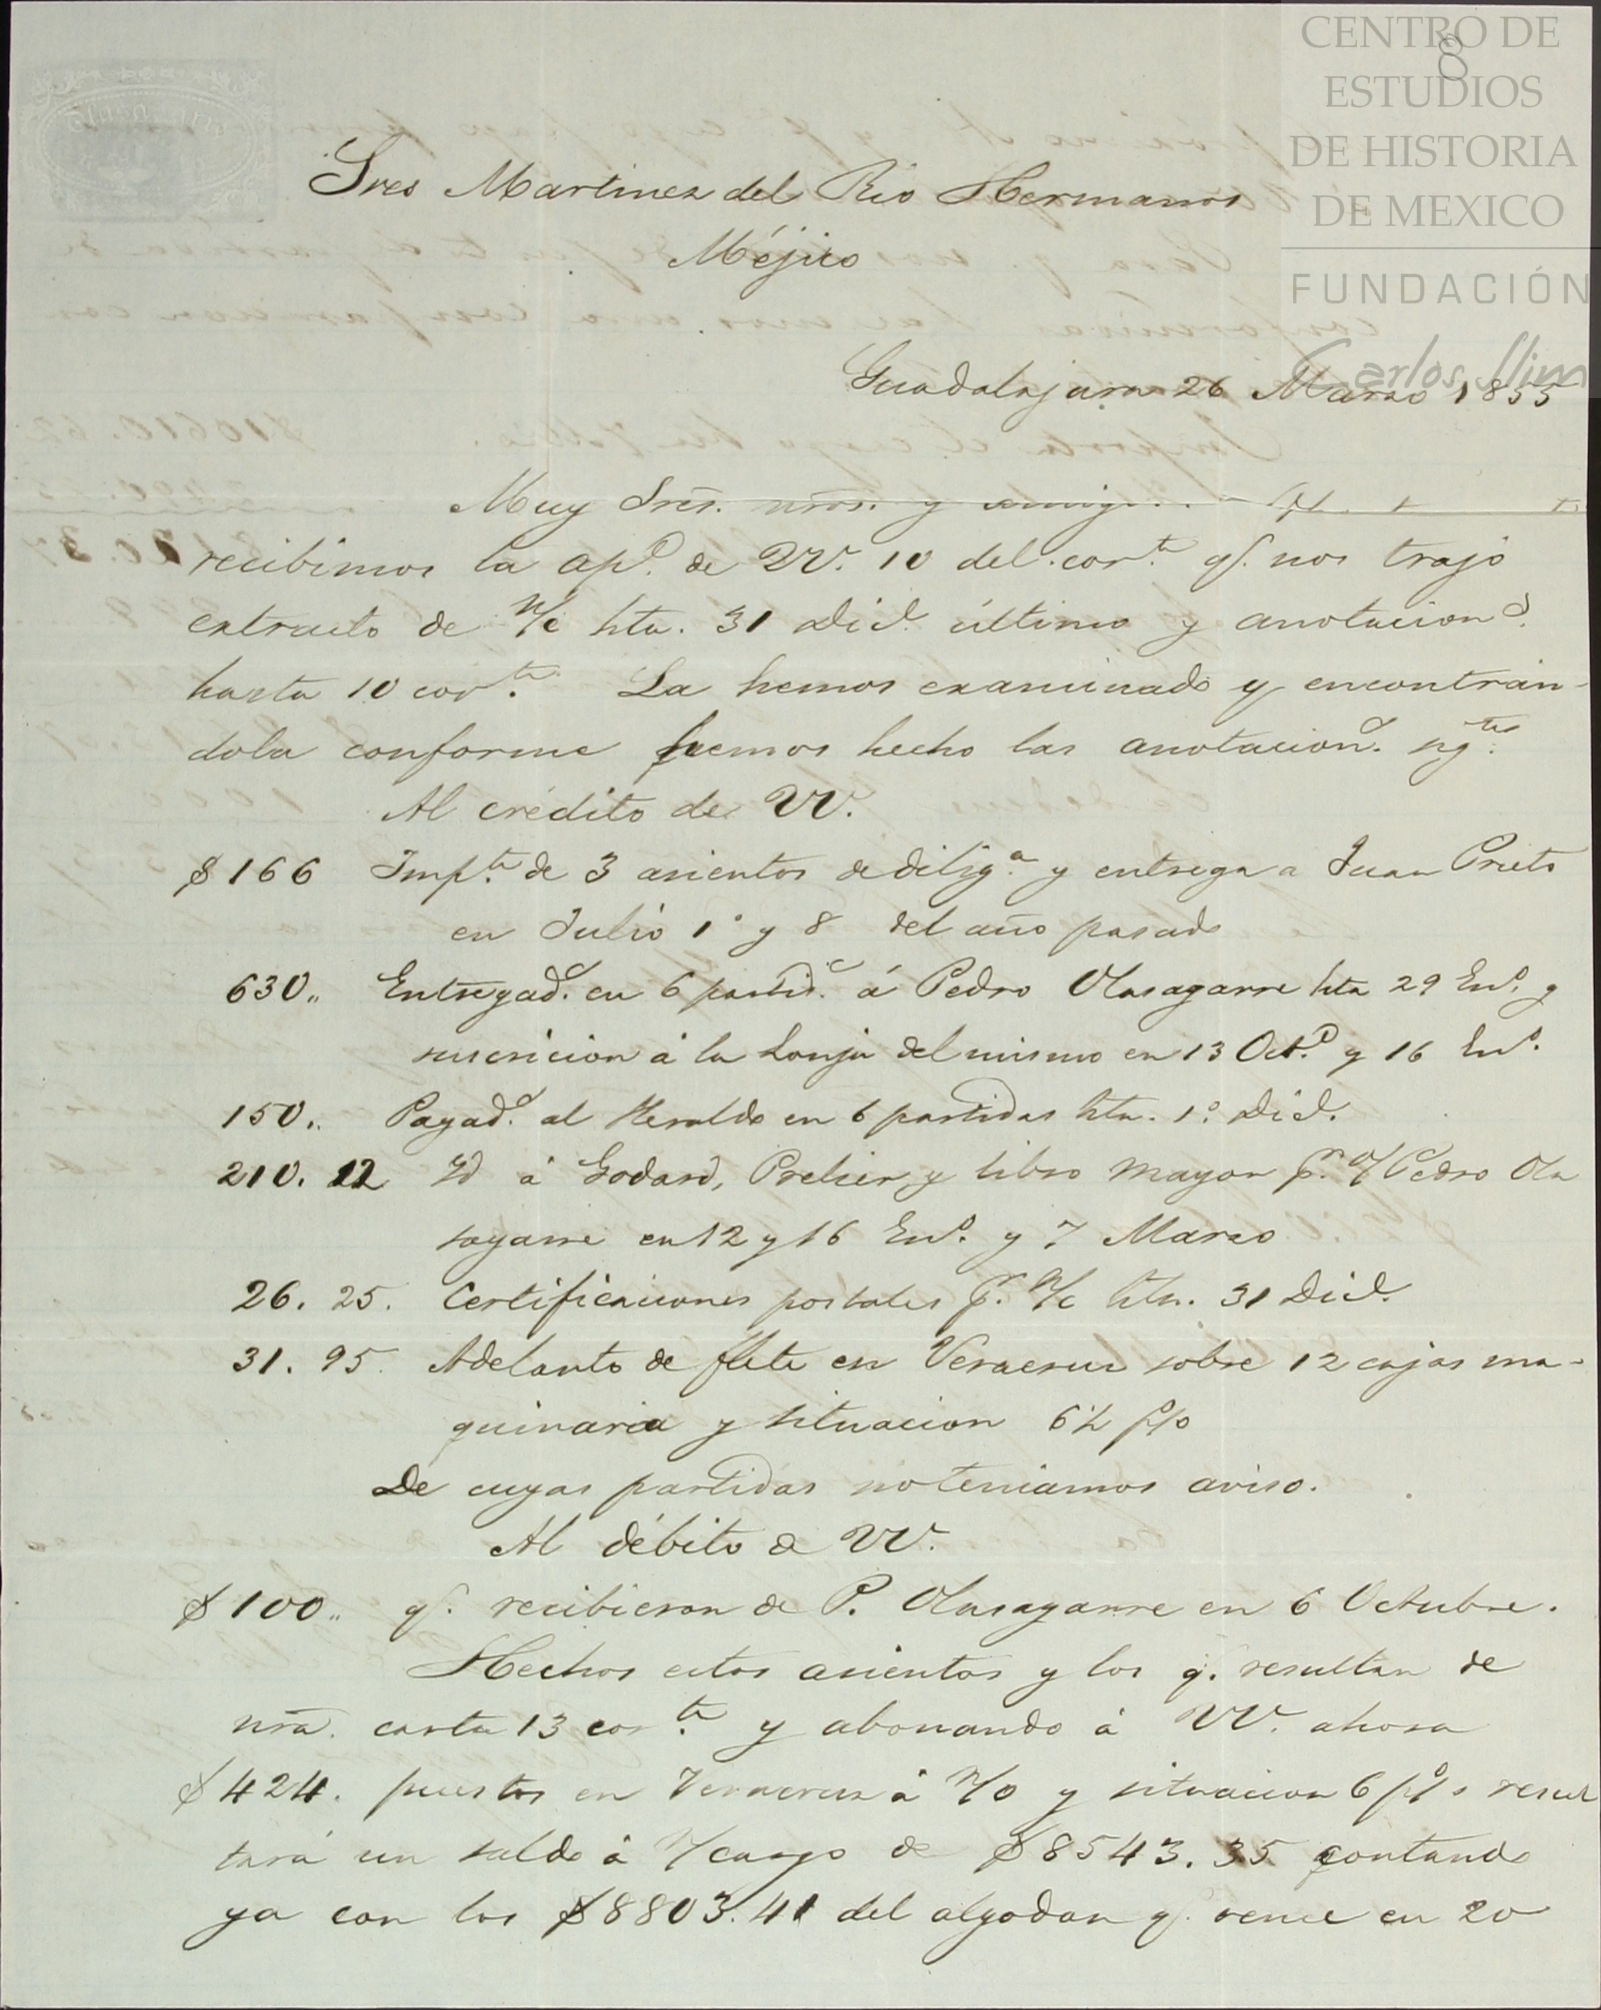 CENTRO DE
ESTUDIOS
DE HISTORIA
DE MEXICO
FUNDACIÓN
Carlos Slim
8
Sres Martinez del Rio Hermanos
Méjico
Guadalajara 26 Marzo 1855
Muy Sres. nros. y amigos
recibimos la ap.ᵈ de VV. 10 del cor.ᵗᵉ q. nos trajo
extracto de n/c hta. 31 Dic.ᵉ último y anotacion.ˢ
hasta 10 cor.ᵗᵉ La hemos examinado y encontrán-
dola conforme hemos hecho las anotacion.ˢ sig.ᵗᵉˢ
Al crédito de VV.
$166 Imp.ᵗᵉ de 3 asientos de dilig.ᵃ y entrega a Juan Prieto
en Julio 1° y 8 del año pasado
630,, Entregad.ˢ en 6 partid.ˢ á Pedro Olasagarre hta 29 En.º y
suscricion á la Lonja del mismo en 13 Oct.ᵉ y 16 En.º
150.. Pagad.ˢ al Heraldo en 6 partidas hta. 1.º Dic.ᵉ
210. 12 Id á Godard, Prelier y libro mayor p.ʳ Pedro Ola
sagarre en 12 y 16 En.º y 7 Marzo
26. 25. Certificaciones postales p.ʳ n/c hta. 31 Dic.ᵉ
31. 95. Adelanto de flete en Veracruz sobre 12 cajas ma-
quinaria y situacion 6½ p/o
De cuyas partidas no teniamos aviso.
Al débito de VV.
$100,, q. recibieron de P. Olasagarre en 6 Octubre.
Hechos estos asientos y los q. resultan de
nra. carta 13 cor.ᵗᵉ y abonando á VV. ahora
$424. puestos en Veracruz á n/o y situacion 6 p/o resul
tará un saldo á n/cargo de $8543.35 contando
ya con los $8803.41 del algodon q. vence en 20